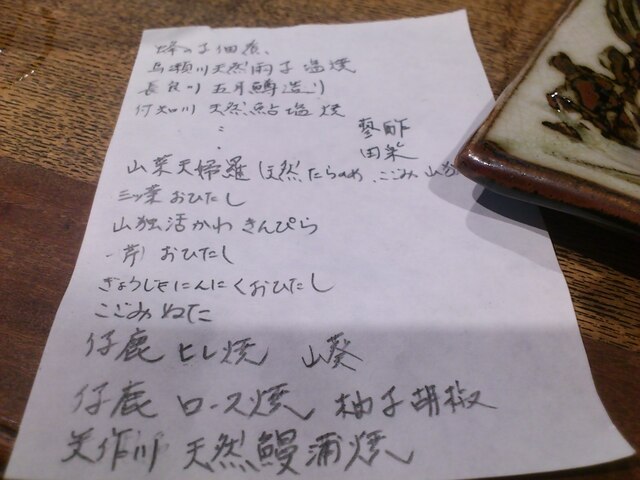 蜂の子佃煮、
馬瀬川天然雨子塩焼
長良川 五月鱒造り
付知川 天然鮎塩焼
蓼酢
田楽
山菜天婦羅 天然たらのめ、こごみ 山独
三ツ葉おひたし
山独活かわ きんぴら
芹 おひたし
ぎょうじゃにんにくおひたし
こごみぬた
仔鹿 ヒレ焼 山葵
仔鹿 ロース焼 柚子胡椒
美作川 天然鰻蒲焼